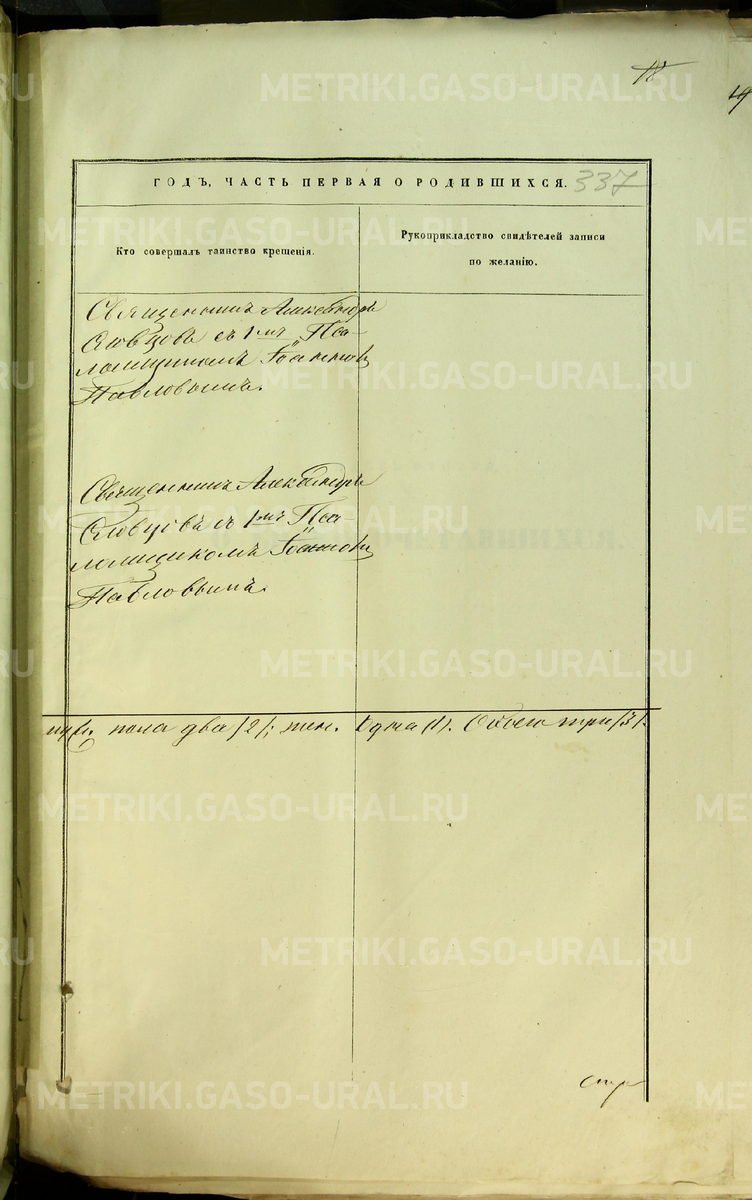 18
19
ГОДЪ, ЧАСТЬ ПЕРВАЯ О РОДИВШИХСЯ. 337
Кто совершалъ таинство крещенія.
Рукоприкладство свидѣтелей записи
по желанію.
Священникъ Александръ
Словцовъ съ 1мъ Пса-
ломщикомъ Іоанномъ
Павловымъ.
Священникъ Александръ
Словцовъ съ 1мъ Пса-
ломщикомъ Іоанномъ
Павловымъ.
муж. пола два /2/; жен. Одна (1). Обоего три /3/.
METRIKI.GASO-URAL.RU